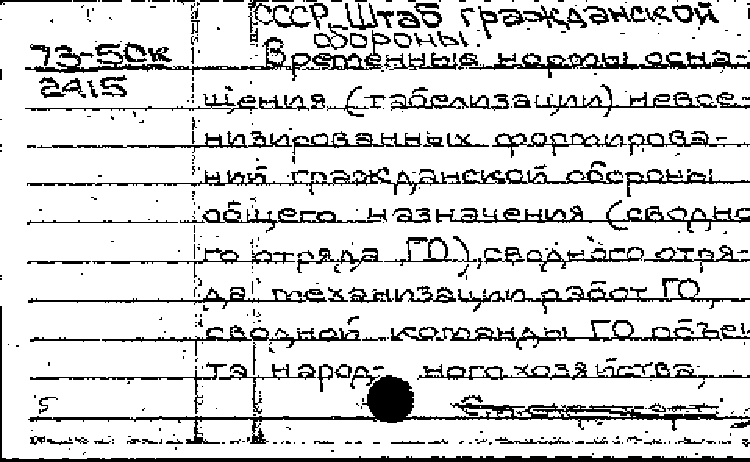 СССР Штаб гражданской
обороны.
73-5ОК
Временные нормы осна-
2415
щения (табелизации) невое-
низированных формирова-
ний гражданской обороны
общего назначения (сводно
го отряда ГО), сводного отря-
да механизации работ ГО,
сводной команды ГО объек
та народ- ного хозяйства,
5